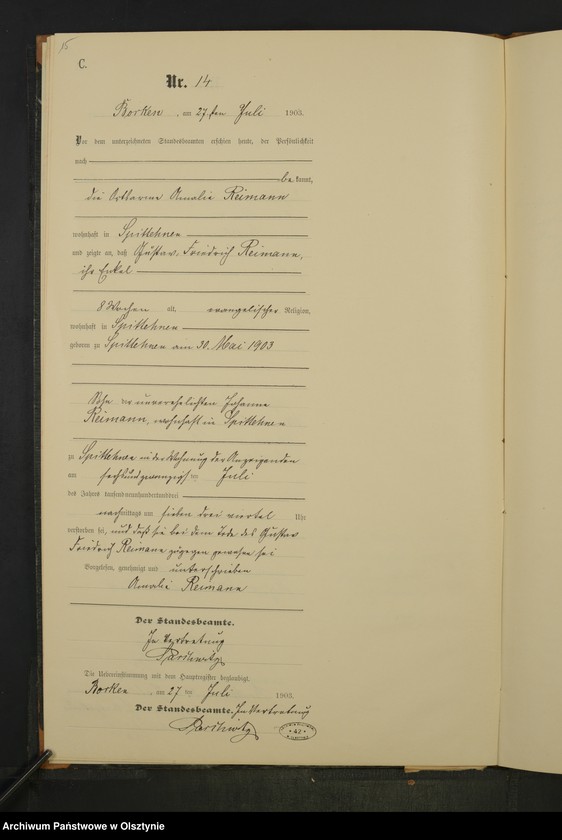 15
C.
Nr. 14
Borken, am 27ten Juli 1903.
Vor dem unterzeichneten Standesbeamten erschien heute, der Persönlichkeit
nach
bekannt,
die Ortsarme Amalie Reimann
wohnhaft in Spittehnen
und zeigte an, daß Gustav Friedrich Reimann,
ihr Enkel
8 Wochen alt, evangelischer Religion,
wohnhaft in Spittehnen
geboren zu Spittehnen am 30. Mai 1903
Sohn der unverehelichten Johanne
Reimann, wohnhaft in Spittehnen
zu Spittehnen in der Wohnung der Anzeigenden
am sechsundzwanzigsten Juli
des Jahres tausendneunhundertunddrei
nachmittags um sieben drei viertel Uhr
verstorben sei, und daß sie bei dem Tode des Gustav
Friedrich Reimann zugegen gewesen sei
Vorgelesen, genehmigt und unterschrieben
Amalie Reimann
Der Standesbeamte.
In Vertretung
Die Uebereinstimmung mit dem Hauptregister beglaubigt.
Borken, am 27 ten Juli 1903.
Der Standesbeamte. In Vertretung
Archiwum Państwowe w Olsztynie